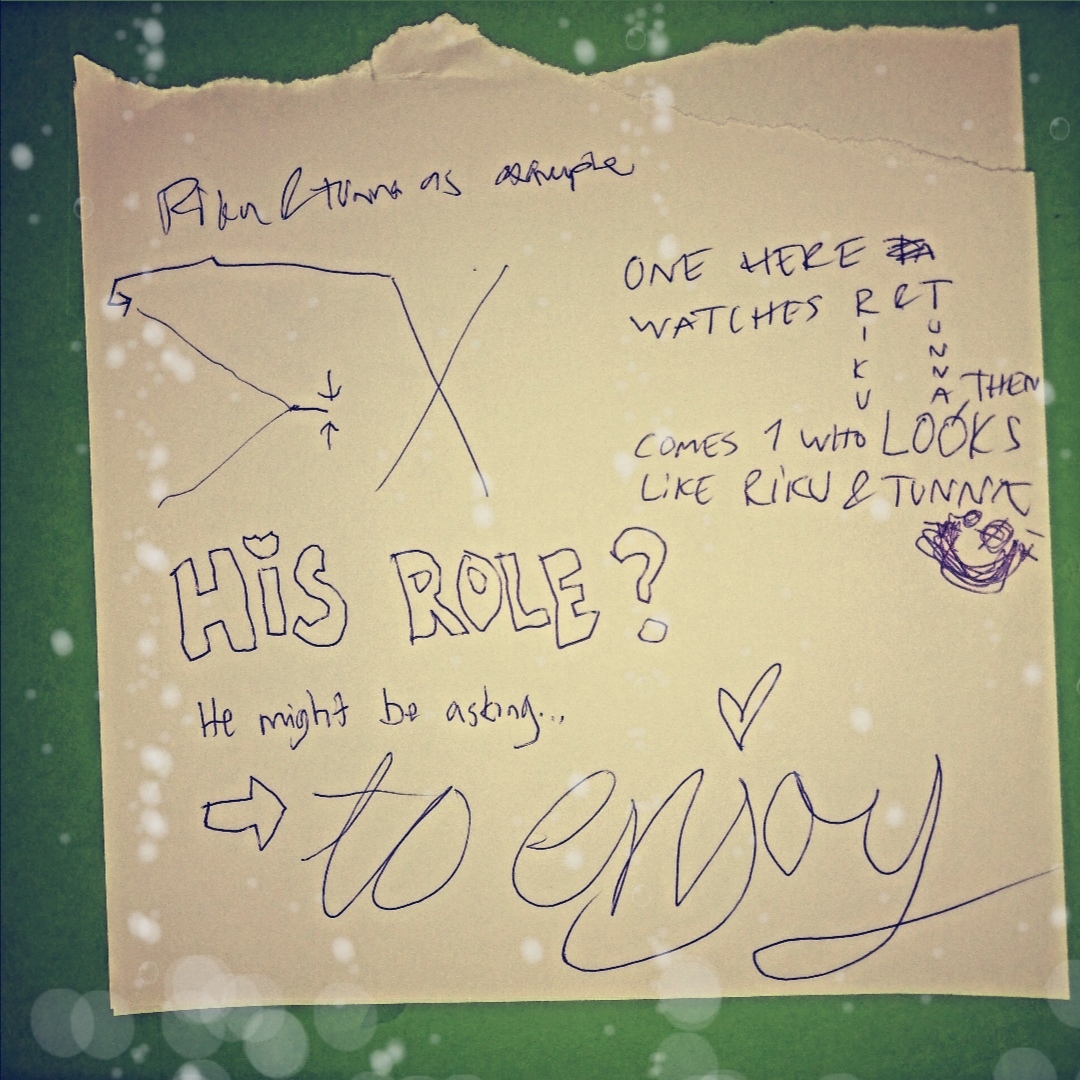 Riku & tunna as example
ONE HERE
WATCHES RIKU & TUNNA, THEN
COMES 1 WHO LOOKS
LIKE RIKU & TUNNA
HIS ROLE?
He might be asking...
to enjoy